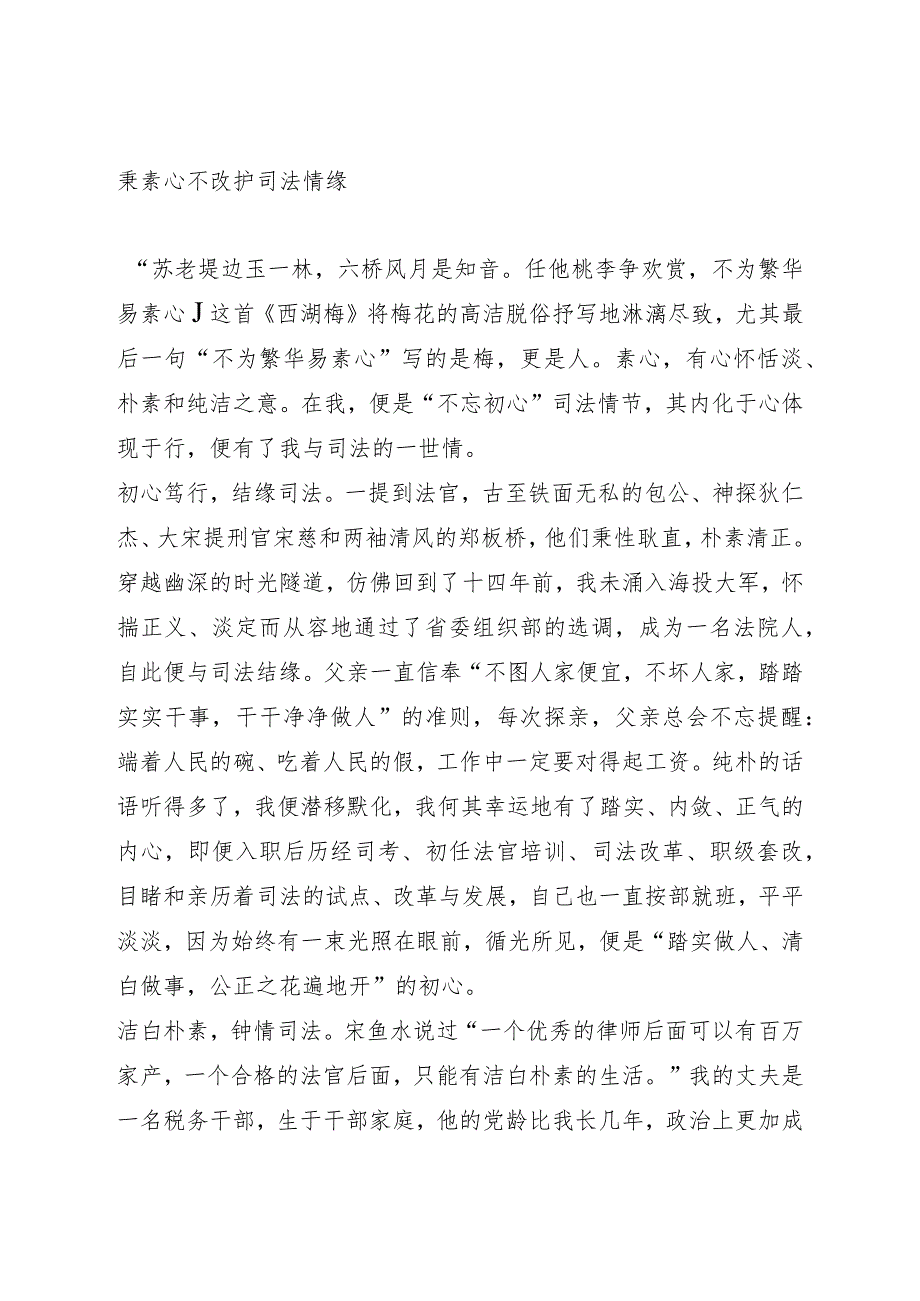 秉素心不改护司法情缘
“苏老堤边玉一林，六桥风月是知音。任他桃李争欢赏，不为繁华
易素心J这首《西湖梅》将梅花的高洁脱俗抒写地淋漓尽致，尤其最
后一句“不为繁华易素心”写的是梅，更是人。素心，有心怀恬淡、
朴素和纯洁之意。在我，便是“不忘初心”司法情节，其内化于心体
现于行，便有了我与司法的一世情。
初心笃行，结缘司法。一提到法官，古至铁面无私的包公、神探狄仁
杰、大宋提刑官宋慈和两袖清风的郑板桥，他们秉性耿直，朴素清正。
穿越幽深的时光隧道，仿佛回到了十四年前，我未涌入海投大军，怀
揣正义、淡定而从容地通过了省委组织部的选调，成为一名法院人，
自此便与司法结缘。父亲一直信奉“不图人家便宜，不坏人家，踏踏
实实干事，干干净净做人”的准则，每次探亲，父亲总会不忘提醒：
端着人民的碗、吃着人民的假，工作中一定要对得起工资。纯朴的话
语听得多了，我便潜移默化，我何其幸运地有了踏实、内敛、正气的
内心，即便入职后历经司考、初任法官培训、司法改革、职级套改，
目睹和亲历着司法的试点、改革与发展，自己也一直按部就班，平平
淡淡，因为始终有一束光照在眼前，循光所见，便是“踏实做人、清
白做事，公正之花遍地开”的初心。
洁白朴素，钟情司法。宋鱼水说过“一个优秀的律师后面可以有百万
家产，一个合格的法官后面，只能有洁白朴素的生活。”我的丈夫是
一名税务干部，生于干部家庭，他的党龄比我长几年，政治上更加成